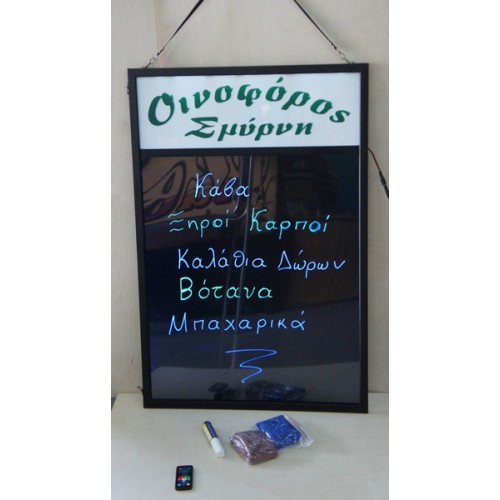 Οινοφόρος
Σμύρνη
Κάβα
Ξηροί Καρποί
Καλάθια Δώρων
Βότανα
Μπαχαρικά